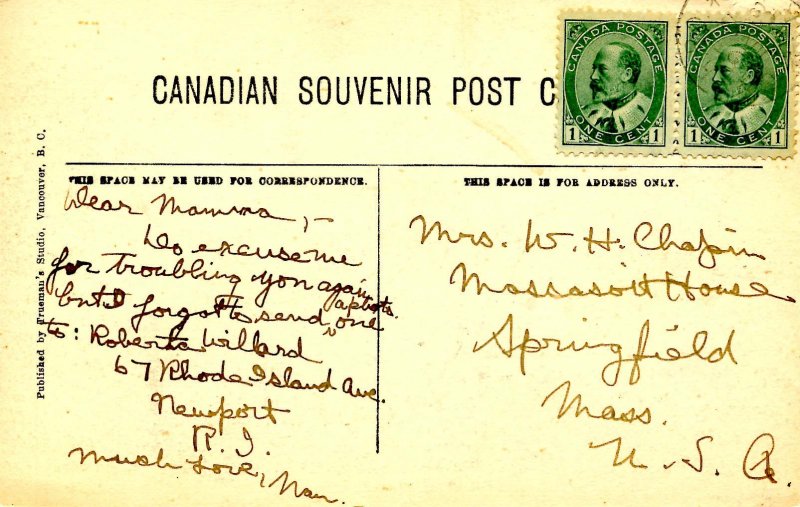 CANADIAN SOUVENIR POST C
CANADA POSTAGE
ONE CENT
1 1
CANADA POSTAGE
ONE CENT
1 1
Published by Trueman's Studio, Vancouver, B. C.
THIS SPACE MAY BE USED FOR CORRESPONDENCE.
Dear Mamma, -
Do excuse me
for troubling you again
but I forgot to send a photo. one
to: Roberta Willard
67 Rhode Island Ave.
Newport
R. I.
Much love, Nan.
THIS SPACE IS FOR ADDRESS ONLY.
Mrs. W. H. Chapin
Massasoit House
Springfield
Mass.
U. S. A.